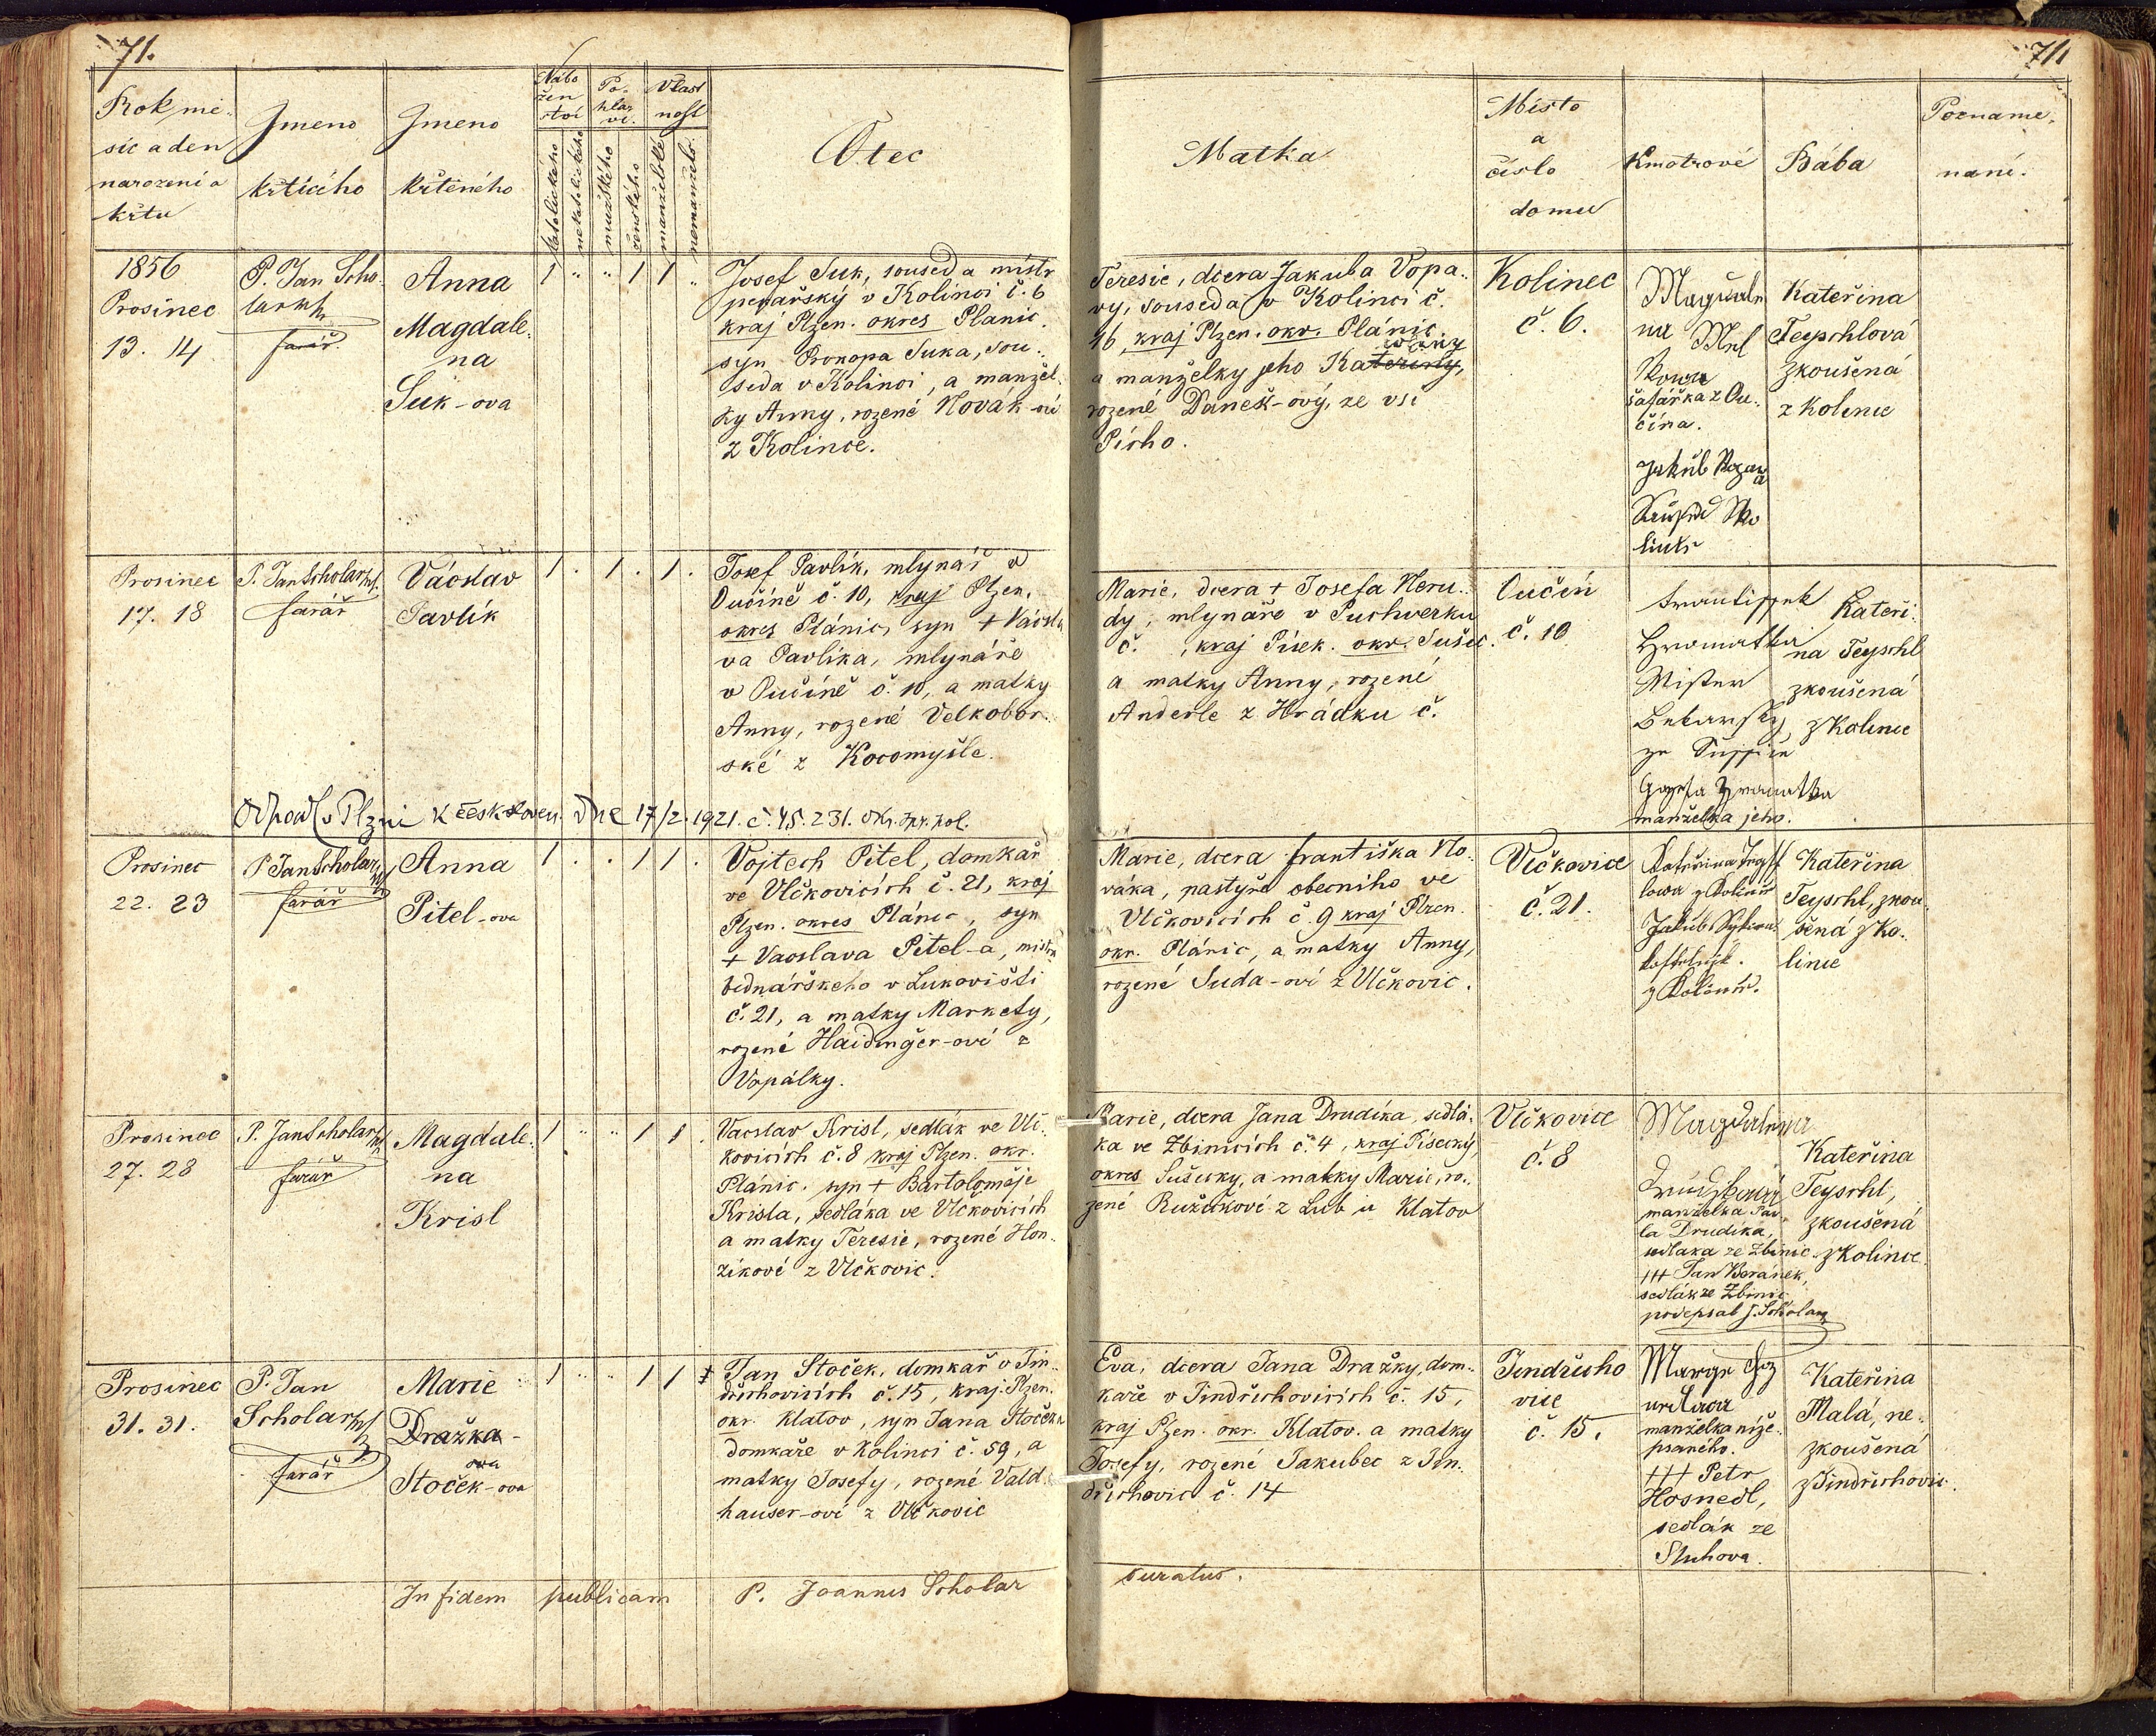 71.
71.
Rok, mě-
síc a den
narození a
křtu
Jmeno
křtícího
Jmeno
křtěného
Nábo
žen
ství
katolického
nekatolického
Po-
hla-
ví.
mužského
ženského
Vlast
nost
manželské
nemanžels.
Otec
Matka
Místo
a
číslo
domu
Kmotrové
Bába
Pozname-
nání.
1856
Prosinec
13. 14
P. Jan Scho-
lar
farář
Anna
Magdale-
na
Suk-ova
1 " " 1 1 "
Josef Suk, soused a mistr
pekařský v Kolinci č. 6
kraj Plzen. okres Planic.
syn Prokopa Suka, sou-
seda v Kolinci, a manžel-
ky Anny, rozené Novák-ové
z Kolince.
Teresie, dcera Jakuba Vopa-
vy, souseda v Kolinci č.
46, kraj Plzen. okr. Plánic.
a manželky jeho Kateřiny,
rozené Daneš-ový, ze vsi
Kolinec
č. 6.
Magdale
na
šafářka z Ou-
čína.
Jakub
Kateřina
Teyschlová
zkoušená
z Kolince
Prosinec
17. 18
P. Jan Scholar
farář
Vácslav
Pavlík
1 . 1 . 1 .
Josef Pavlík, mlynář v
Oučíně č. 10, kraj Plzen.
okres Plánic, syn + Vácsla
va Pavlíka, mlynáře
v Oučíně č. 10, a matky
Anny, rozené Velkobor-
ské z Kocomyšle.
Marie, dcera + Josefa Neru-
dy, mlynáře v Puchverku
č. , kraj Písek. okr. Sušic.
a matky Anny, rozené
Anderle z Hrádku č.
Oučín
č. 10
Frantissek
Hromatka
Mister
Bekarsky
ze Sussice
Hromatka
manželka jeho.
Kateři-
na Teyschl
zkoušená
z Kolince
Odpadl v Plzni k českosloven. dne 17/2. 1921. č. 45.231. okr. spr. pol.
Prosinec
22. 23
P. Jan Scholar
farář
Anna
Pitel-ova
1 . . 1 1 .
Vojtech Pitel, domkář
ve Vlčkovicích č. 21, kraj
Plzen. okres Plánic, syn
+ Vacslava Pitel-a, mistra
bednářského v Lukovišti
č. 21, a matky Markety,
rozené Haidinger-ové z
Vopálky.
Marie, dcera Františka No-
váka, pastýře obecního ve
Vlčkovicích č. 9 kraj Plzen.
okr. Plánic, a matky Anny,
rozené Suda-ové z Vlčkovic.
Vlčkovice
č. 21.
Kateřina
lowa z Kolince
Jakub
z Kolince.
Kateřina
Teyschl, zkou-
šená z Ko-
lince
Prosinec
27. 28
P. Jan Scholar
farář
Magdale-
na
Krisl
1 " " 1 1 .
Vacslav Krisl, sedlák ve Vlč-
kovicích č. 8 kraj Plzen. okr.
Plánic. syn + Bartoloměje
Krisla, sedláka ve Vlčkovicích
a matky Teresie, rozené Hon-
zíkové z Vlčkovic.
Marie, dcera Jana Drudíka, sedlá-
ka ve Zbinicích č. 4, kraj Písecký,
okres Sušicky, a matky Marie, ro-
zené Ružičkové z Lub u Klatov
Vlčkovice
č. 8
Magdalena
manželka Pav-
la Drudíka,
sedláka ze Zbinic.
+++ Jan Beránek,
sedlák ze Zbinic,
podepsal J. Scholar
Kateřina
Teyschl,
zkoušená
z Kolince
Prosinec
31. 31.
P. Jan
Scholar
farář
Marie
Dražka-
ova
Stoček-ova
1 " " 1 1
Jan Stoček, domkář v Jin-
dřichovicích č. 15, kraj. Plzen.
okr. Klatov, syn Jana Stočeka
domkáře v Kolinci č. 59, a
matky Josefy, rozené Vald-
hauser-ové z Vlčkovic
Eva, dcera Jana Dražky, dom-
káře v Jindřichovicích č. 15,
kraj Plzen. okr. Klatov. a matky
Josefy, rozené Jakubec z Jin-
dřichovic č. 14
Jindřicho
vice
č. 15.
manželka níže
psaného.
+++ Petr
Hosnedl,
sedlák ze
Sluhova.
Kateřina
Malá, ne-
zkoušená
z Jindřichovic.
In fidem publicam P. Joannes Scholar
curatus.